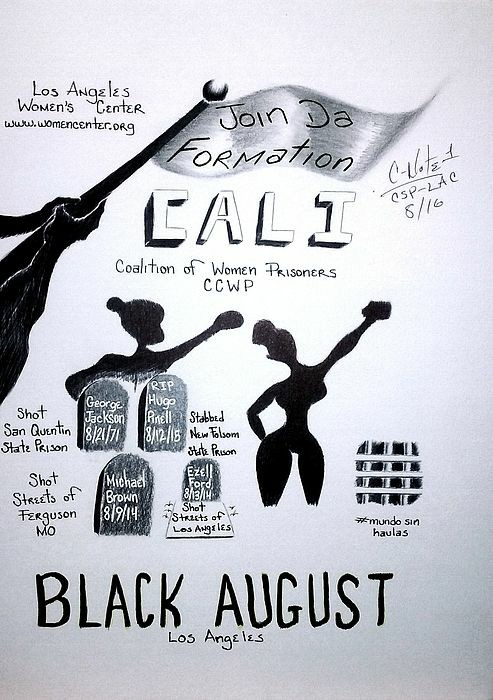 Los Angeles
Women's Center
www.womencenter.org
Join Da
Formation
C-Note-1
CSP-LAC
8/16
CALI
Coalition of Women Prisoners
CCWP
Shot
San Quentin
State Prison
George
Jackson
8/21/71
RIP
Hugo
Pinell
8/12/15
Stabbed
New Folsom
State Prison
Shot
Streets of
Ferguson
MO
Michael
Brown
8/9/14
Ezell
Ford
8/13/14
Shot
Streets of
Los Angeles
#mundo sin
haulas
BLACK AUGUST
Los Angeles